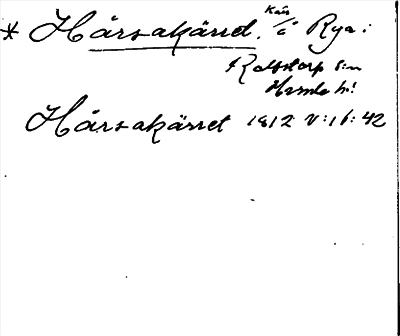 * Hårsakärret. Kärr i Rya:
Rolfstorp sn
Himle hd
Hårsakärret 1812 V:16:42